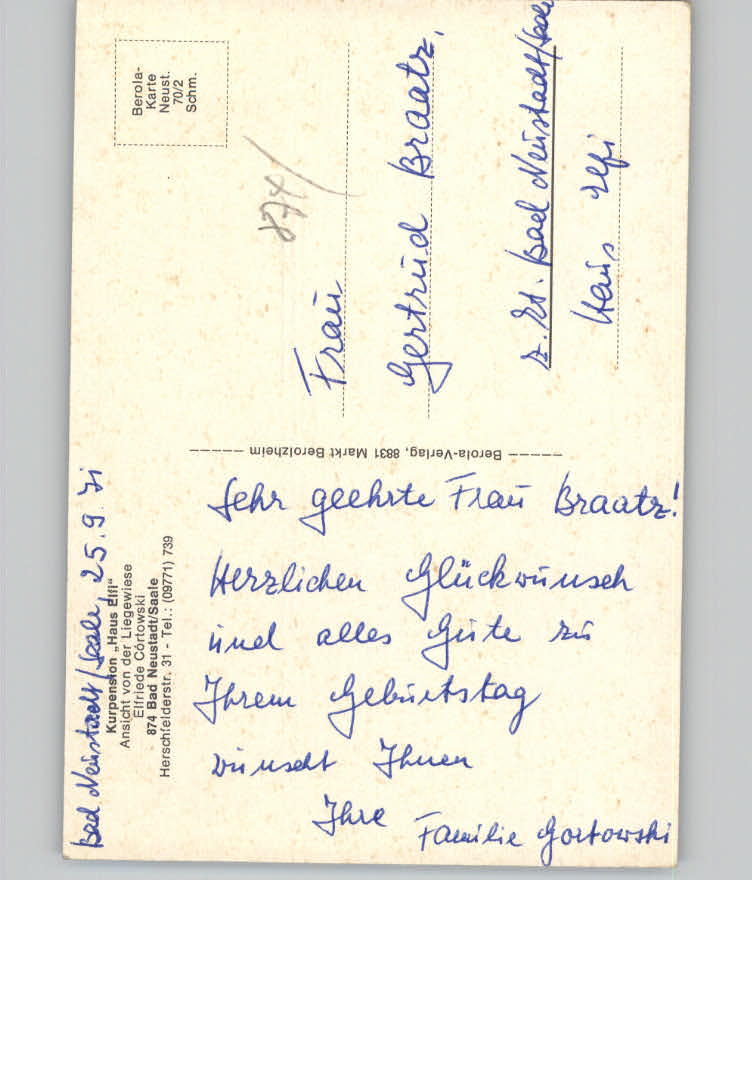 Bad Neustadt/Saale, 25.9.71
Kurpension „Haus Elfi“
Ansicht von der Liegewiese
Elfriede Cortowski
874 Bad Neustadt/Saale
Herschfelderstr. 31 - Tel.: (09771) 739
Sehr geehrte Frau Braatz!
Herzlichen Glückwunsch
und alles Gute zu
Ihrem Geburtstag
wünscht Ihnen
Ihre Familie Gortowski
Berola-Verlag, 8831 Markt Berolzheim
Berola-
Karte
Neust.
70/2
Schm.
874/
Frau
Gertrud Braatz,
z. Zt. Bad Neustadt/Saale
Haus Elfi